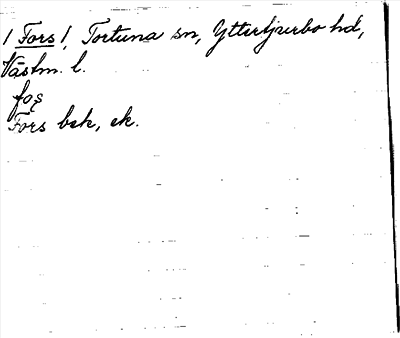 / Fors /, Tortuna sn, Yttertjurbo hd,
Västm. l.
foʂ
Fors bek, ek.